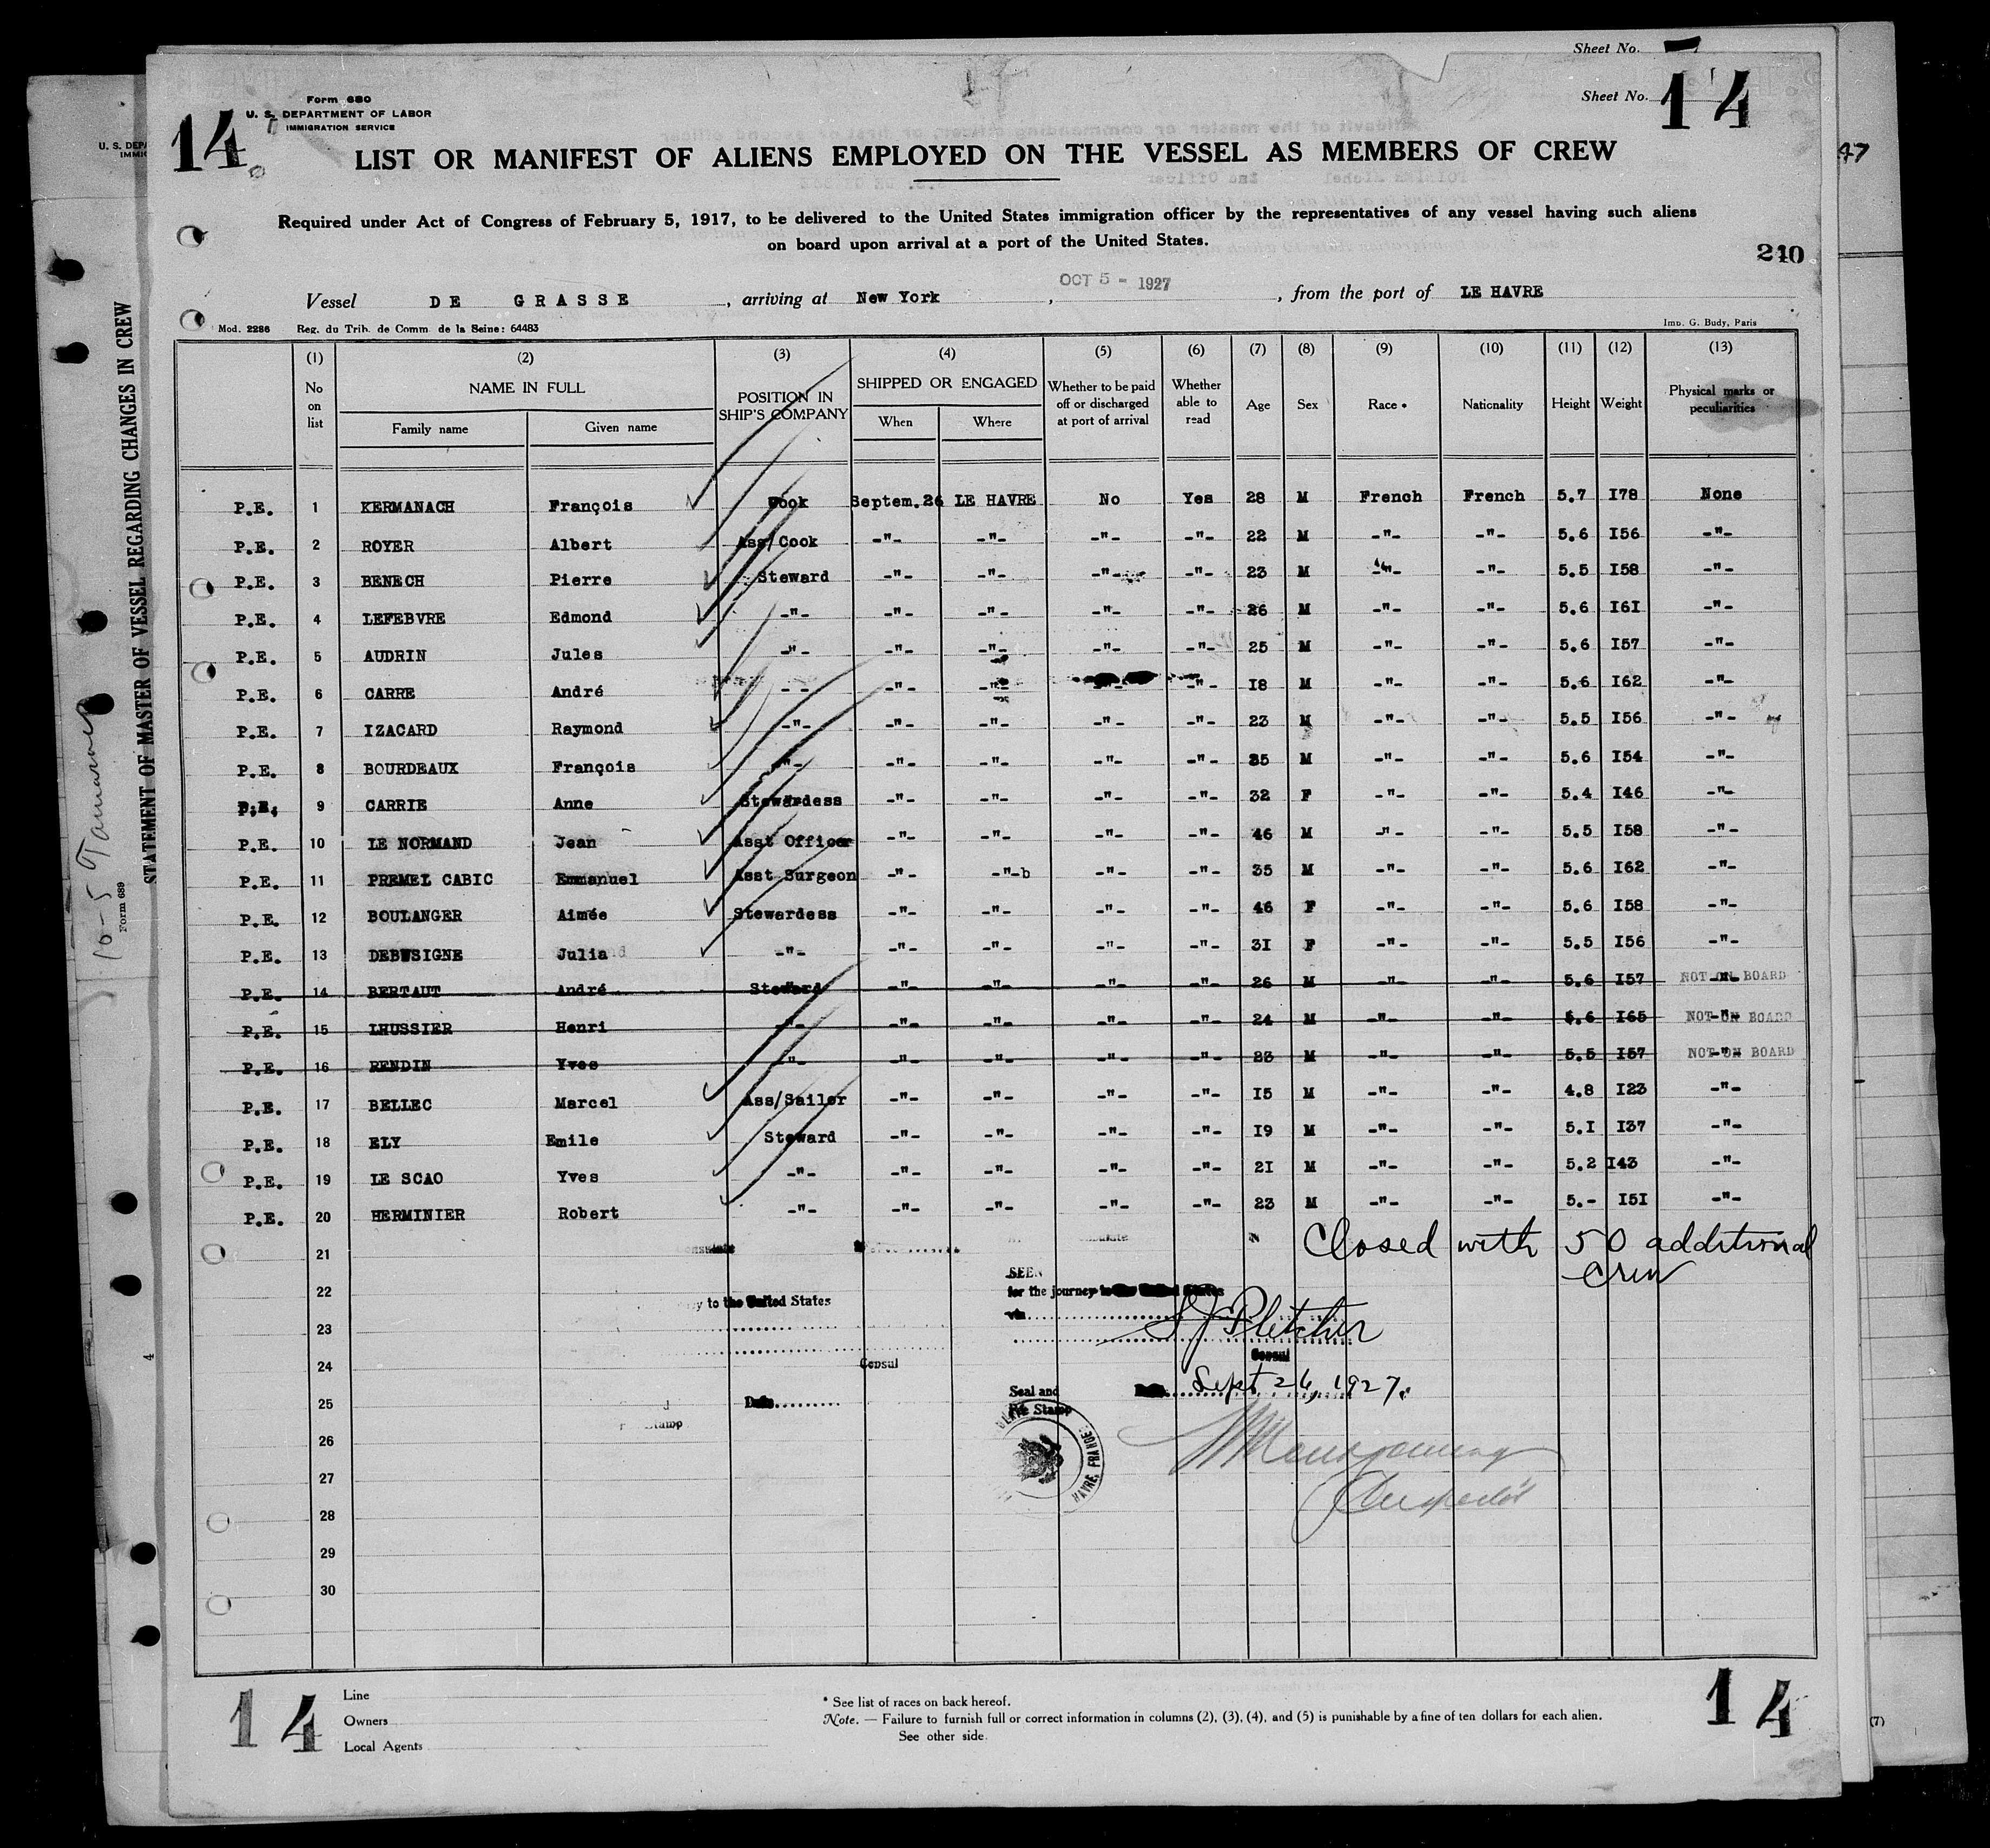 Sheet No.
Sheet No. 14
14
Form 680
U. S. DEPARTMENT OF LABOR
IMMIGRATION SERVICE
LIST OR MANIFEST OF ALIENS EMPLOYED ON THE VESSEL AS MEMBERS OF CREW
Required under Act of Congress of February 5, 1917, to be delivered to the United States immigration officer by the representatives of any vessel having such aliens
on board upon arrival at a port of the United States.
210
Vessel DE GRASSE, arriving at New York, OCT 5 - 1927, from the port of LE HAVRE
Mod. 2286 Reg. du Trib. de Comm. de la Seine: 64483 Imp. G. Budy, Paris
(1) (2) (3) (4) (5) (6) (7) (8) (9) (10) (11) (12) (13)
No on list NAME IN FULL Family name Given name POSITION IN SHIP'S COMPANY SHIPPED OR ENGAGED When Where Whether to be paid off or discharged at port of arrival Whether able to read Age Sex Race * Nationality Height Weight Physical marks or peculiarities
P.E. 1 KERMANACH François Cook Septem.26 LE HAVRE No Yes 28 M French French 5.7 I78 None
P.E. 2 ROYER Albert Ass/Cook -"- -"- -"- -"- 22 M -"- -"- 5.6 I56 -"-
P.E. 3 BENECH Pierre Steward -"- -"- -"- -"- 23 M -"- -"- 5.5 I58 -"-
P.E. 4 LEFEBVRE Edmond -"- -"- -"- -"- -"- 26 M -"- -"- 5.6 I6I -"-
P.E. 5 AUDRIN Jules -"- -"- -"- -"- -"- 25 M -"- -"- 5.6 I57 -"-
P.E. 6 CARRE André - - -"- -"- -"- -"- I8 M -"- -"- 5.6 I62 -"-
P.E. 7 IZACARD Raymond -"- -"- -"- -"- -"- 23 M -"- -"- 5.5 I56 -"-
P.E. 8 BOURDEAUX François -"- -"- -"- -"- -"- 35 M -"- -"- 5.6 I54 -"-
P.E. 9 CARRIE Anne Stewardess -"- -"- -"- -"- 32 F -"- -"- 5.4 I46 -"-
P.E. 10 LE NORMAND Jean Asst Officer -"- -"- -"- -"- 46 M -"- -"- 5.5 I58 -"-
P.E. 11 PREMEL CABIC Emmanuel Asst Surgeon -"- -"-b -"- -"- 35 M -"- -"- 5.6 I62 -"-
P.E. 12 BOULANGER Aimée Stewardess -"- -"- -"- -"- 46 F -"- -"- 5.6 I58 -"-
P.E. 13 DEBUSIGNE Julia -"- -"- -"- -"- -"- 3I F -"- -"- 5.5 I56 -"-
P.E. 14 BERTAUT André Steward -"- -"- -"- -"- 26 M -"- -"- 5.6 I57 -"- NOT ON BOARD
P.E. 15 LHUSSIER Henri -"- -"- -"- -"- -"- 24 M -"- -"- 5.6 I65 -"- NOT ON BOARD
P.E. 16 RENDIN Yves -"- -"- -"- -"- -"- 23 M -"- -"- 5.5 I57 -"- NOT ON BOARD
P.E. 17 BELLEC Marcel Ass/Sailor -"- -"- -"- -"- I5 M -"- -"- 4.8 I23 -"-
P.E. 18 ELY Emile Steward -"- -"- -"- -"- I9 M -"- -"- 5.I I37 -"-
P.E. 19 LE SCAO Yves -"- -"- -"- -"- -"- 2I M -"- -"- 5.2 I43 -"-
P.E. 20 HERMINIER Robert -"- -"- -"- -"- -"- 23 M -"- -"- 5.- I5I -"-
21 Closed with 50 additional
crew
22 to the United States SEEN for the journey to the United States
23 via
24 Consul Consul
25 Date Seal and Fee Stamp Date Sept 26, 1927.
26 HAVRE, FRANCE
27
28 Inspector
29
30
14 Line
Owners
Local Agents
* See list of races on back hereof.
Note. — Failure to furnish full or correct information in columns (2), (3), (4), and (5) is punishable by a fine of ten dollars for each alien.
See other side.
14
STATEMENT OF MASTER OF VESSEL REGARDING CHANGES IN CREW
Form 689
47
(7)